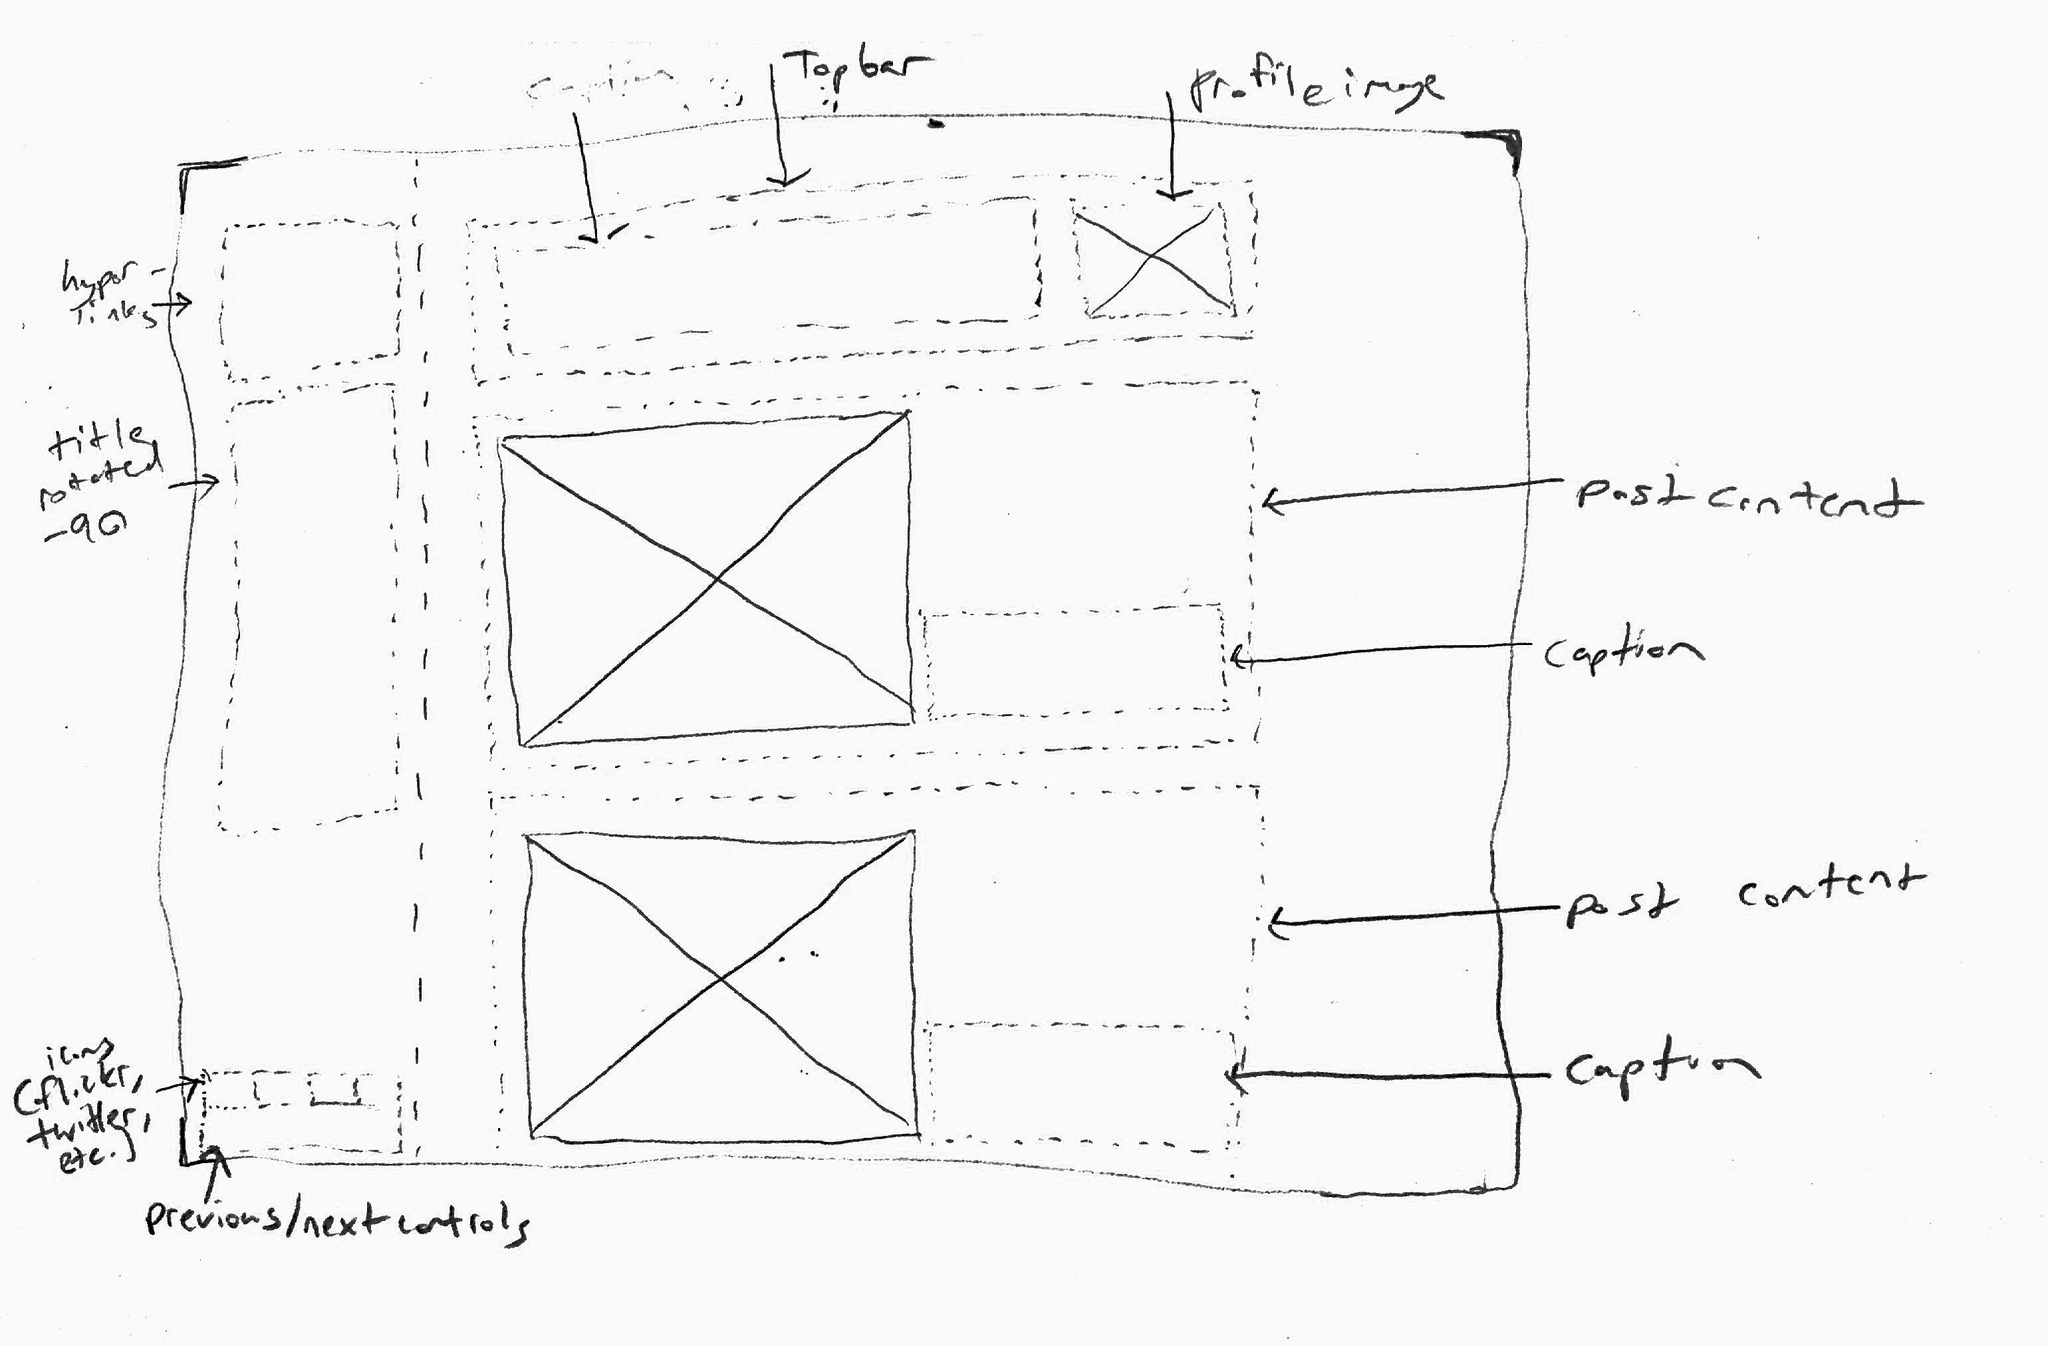 caption
Topbar
profile image
hyper-
links
title,
rotated
-90
post content
caption
post content
caption
icons
(flickr,
twitter,
etc.)
previous/next controls